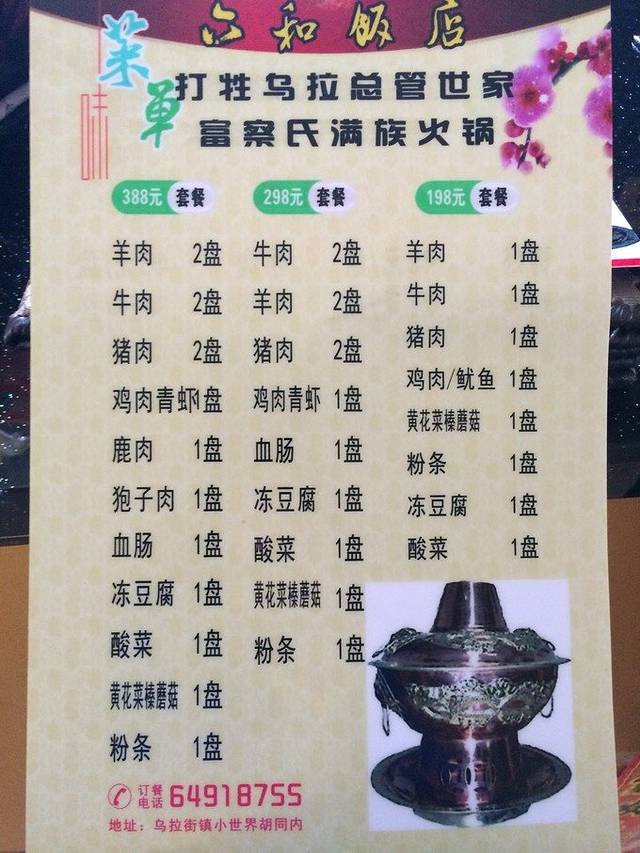 六和饭店
菜单
味
打牲乌拉总管世家
富察氏满族火锅
388元 套餐
羊肉 2盘
牛肉 2盘
猪肉 2盘
鸡肉青虾1盘
鹿肉 1盘
狍子肉 1盘
血肠 1盘
冻豆腐 1盘
酸菜 1盘
黄花菜榛蘑菇 1盘
粉条 1盘
298元 套餐
牛肉 2盘
羊肉 2盘
猪肉 2盘
鸡肉青虾 1盘
血肠 1盘
冻豆腐 1盘
酸菜 1盘
黄花菜榛蘑菇 1盘
粉条 1盘
198元 套餐
羊肉 1盘
牛肉 1盘
猪肉 1盘
鸡肉/鱿鱼 1盘
黄花菜榛蘑菇 1盘
粉条 1盘
冻豆腐 1盘
酸菜 1盘
订餐电话 64918755
地址：乌拉街镇小世界胡同内